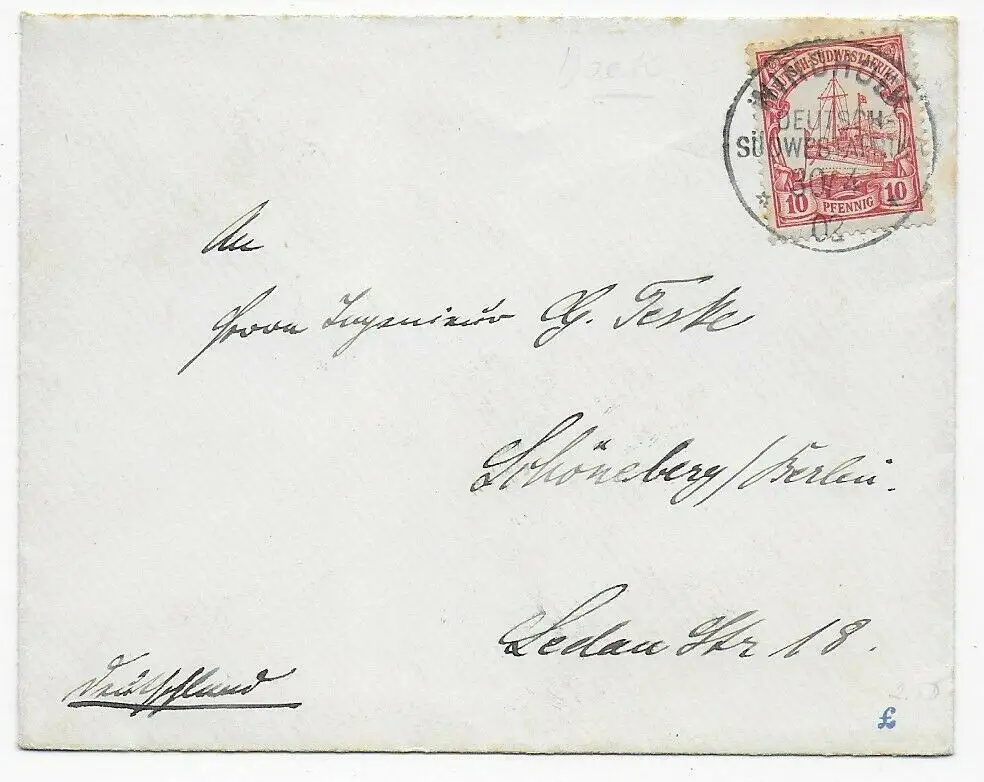 DEUTSCH-SÜDWESTAFRIKA
WINDHUK
DEUTSCH-
SÜDWESTAFRIKA
30/4
02
10 PFENNIG 10
An
Herrn Ingenieur G. Teske
Schöneberg/Berlin.
Sedan Str 18.
Deutschland
£